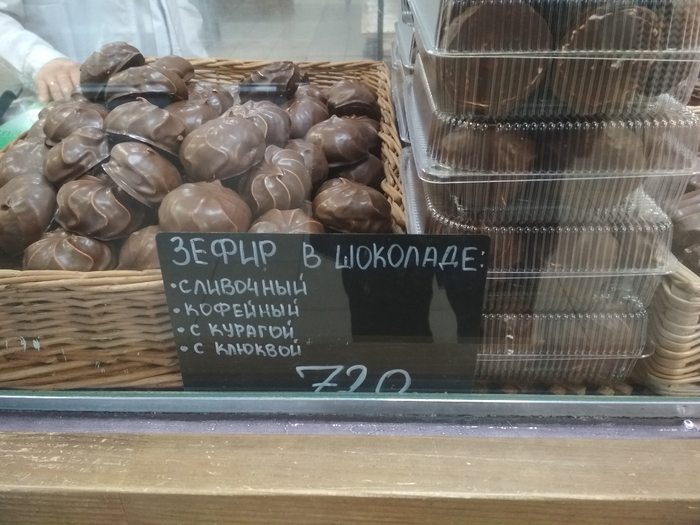 ЗЕФИР В ШОКОЛАДЕ:
• СЛИВОЧНЫЙ
• КОФЕЙНЫЙ
• С КУРАГОЙ
• С КЛЮКВОЙ
720